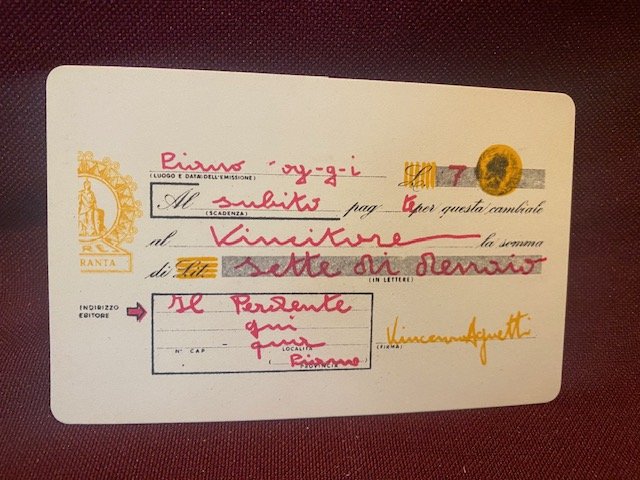 Piamo og-g-i L. 7
(LUOGO E DATA DELL'EMISSIONE)
Al subito pag te per questa cambiale
(SCADENZA)
al Vincitore la somma
REX
RANTA
di Lit. sette di denaio
(IN LETTERE)
INDIRIZZO
EBITORE
Il Perdente
qui
qua
N° CAP LOCALITÀ
Piamo
PROVINCIA
Vincenzo Agnetti
(FIRMA)